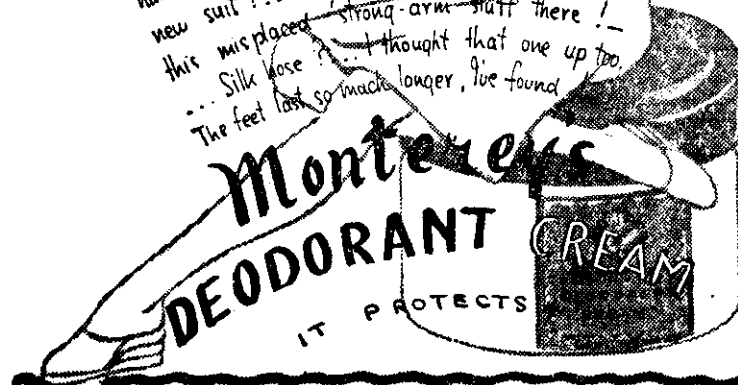 new suit ?...
this misplaced strong-arm stuff there !
... Silk hose ?... I thought that one up too.
The feet last so much longer, I've found
Monterey's
DEODORANT CREAM
IT PROTECTS